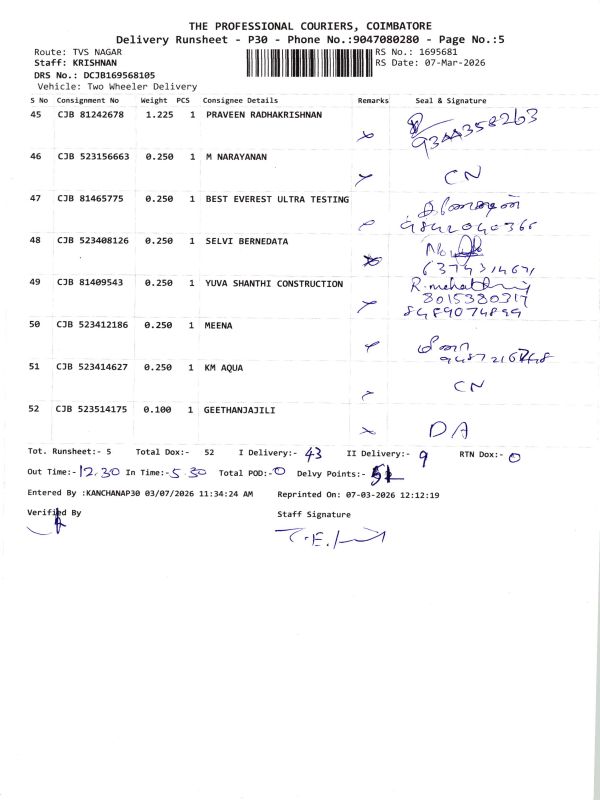 THE PROFESSIONAL COURIERS, COIMBATORE
Delivery Runsheet - P30 - Phone No.:9047080280 - Page No.:5
Route: TVS NAGAR RS No.: 1695681
Staff: KRISHNAN RS Date: 07-Mar-2026
DRS No.: DCJB169568105
Vehicle: Two Wheeler Delivery
S No Consignment No Weight PCS Consignee Details Remarks Seal & Signature
45 CJB 81242678 1.225 1 PRAVEEN RADHAKRISHNAN
9344358263
46 CJB 523156663 0.250 1 M NARAYANAN
CN
47 CJB 81465775 0.250 1 BEST EVEREST ULTRA TESTING
9842040366
48 CJB 523408126 0.250 1 SELVI BERNEDATA
49 CJB 81409543 0.250 1 YUVA SHANTHI CONSTRUCTION
8015380317
8489074899
50 CJB 523412186 0.250 1 MEENA
மீனா
51 CJB 523414627 0.250 1 KM AQUA
CN
52 CJB 523514175 0.100 1 GEETHANJAJILI
DA
Tot. Runsheet:- 5 Total Dox:- 52 I Delivery:- 43 II Delivery:- 9 RTN Dox:- 0
Out Time:- 12.30 In Time:- 5.30 Total POD:- 0 Delvy Points:- 51
Entered By :KANCHANAP30 03/07/2026 11:34:24 AM Reprinted On: 07-03-2026 12:12:19
Verified By Staff Signature